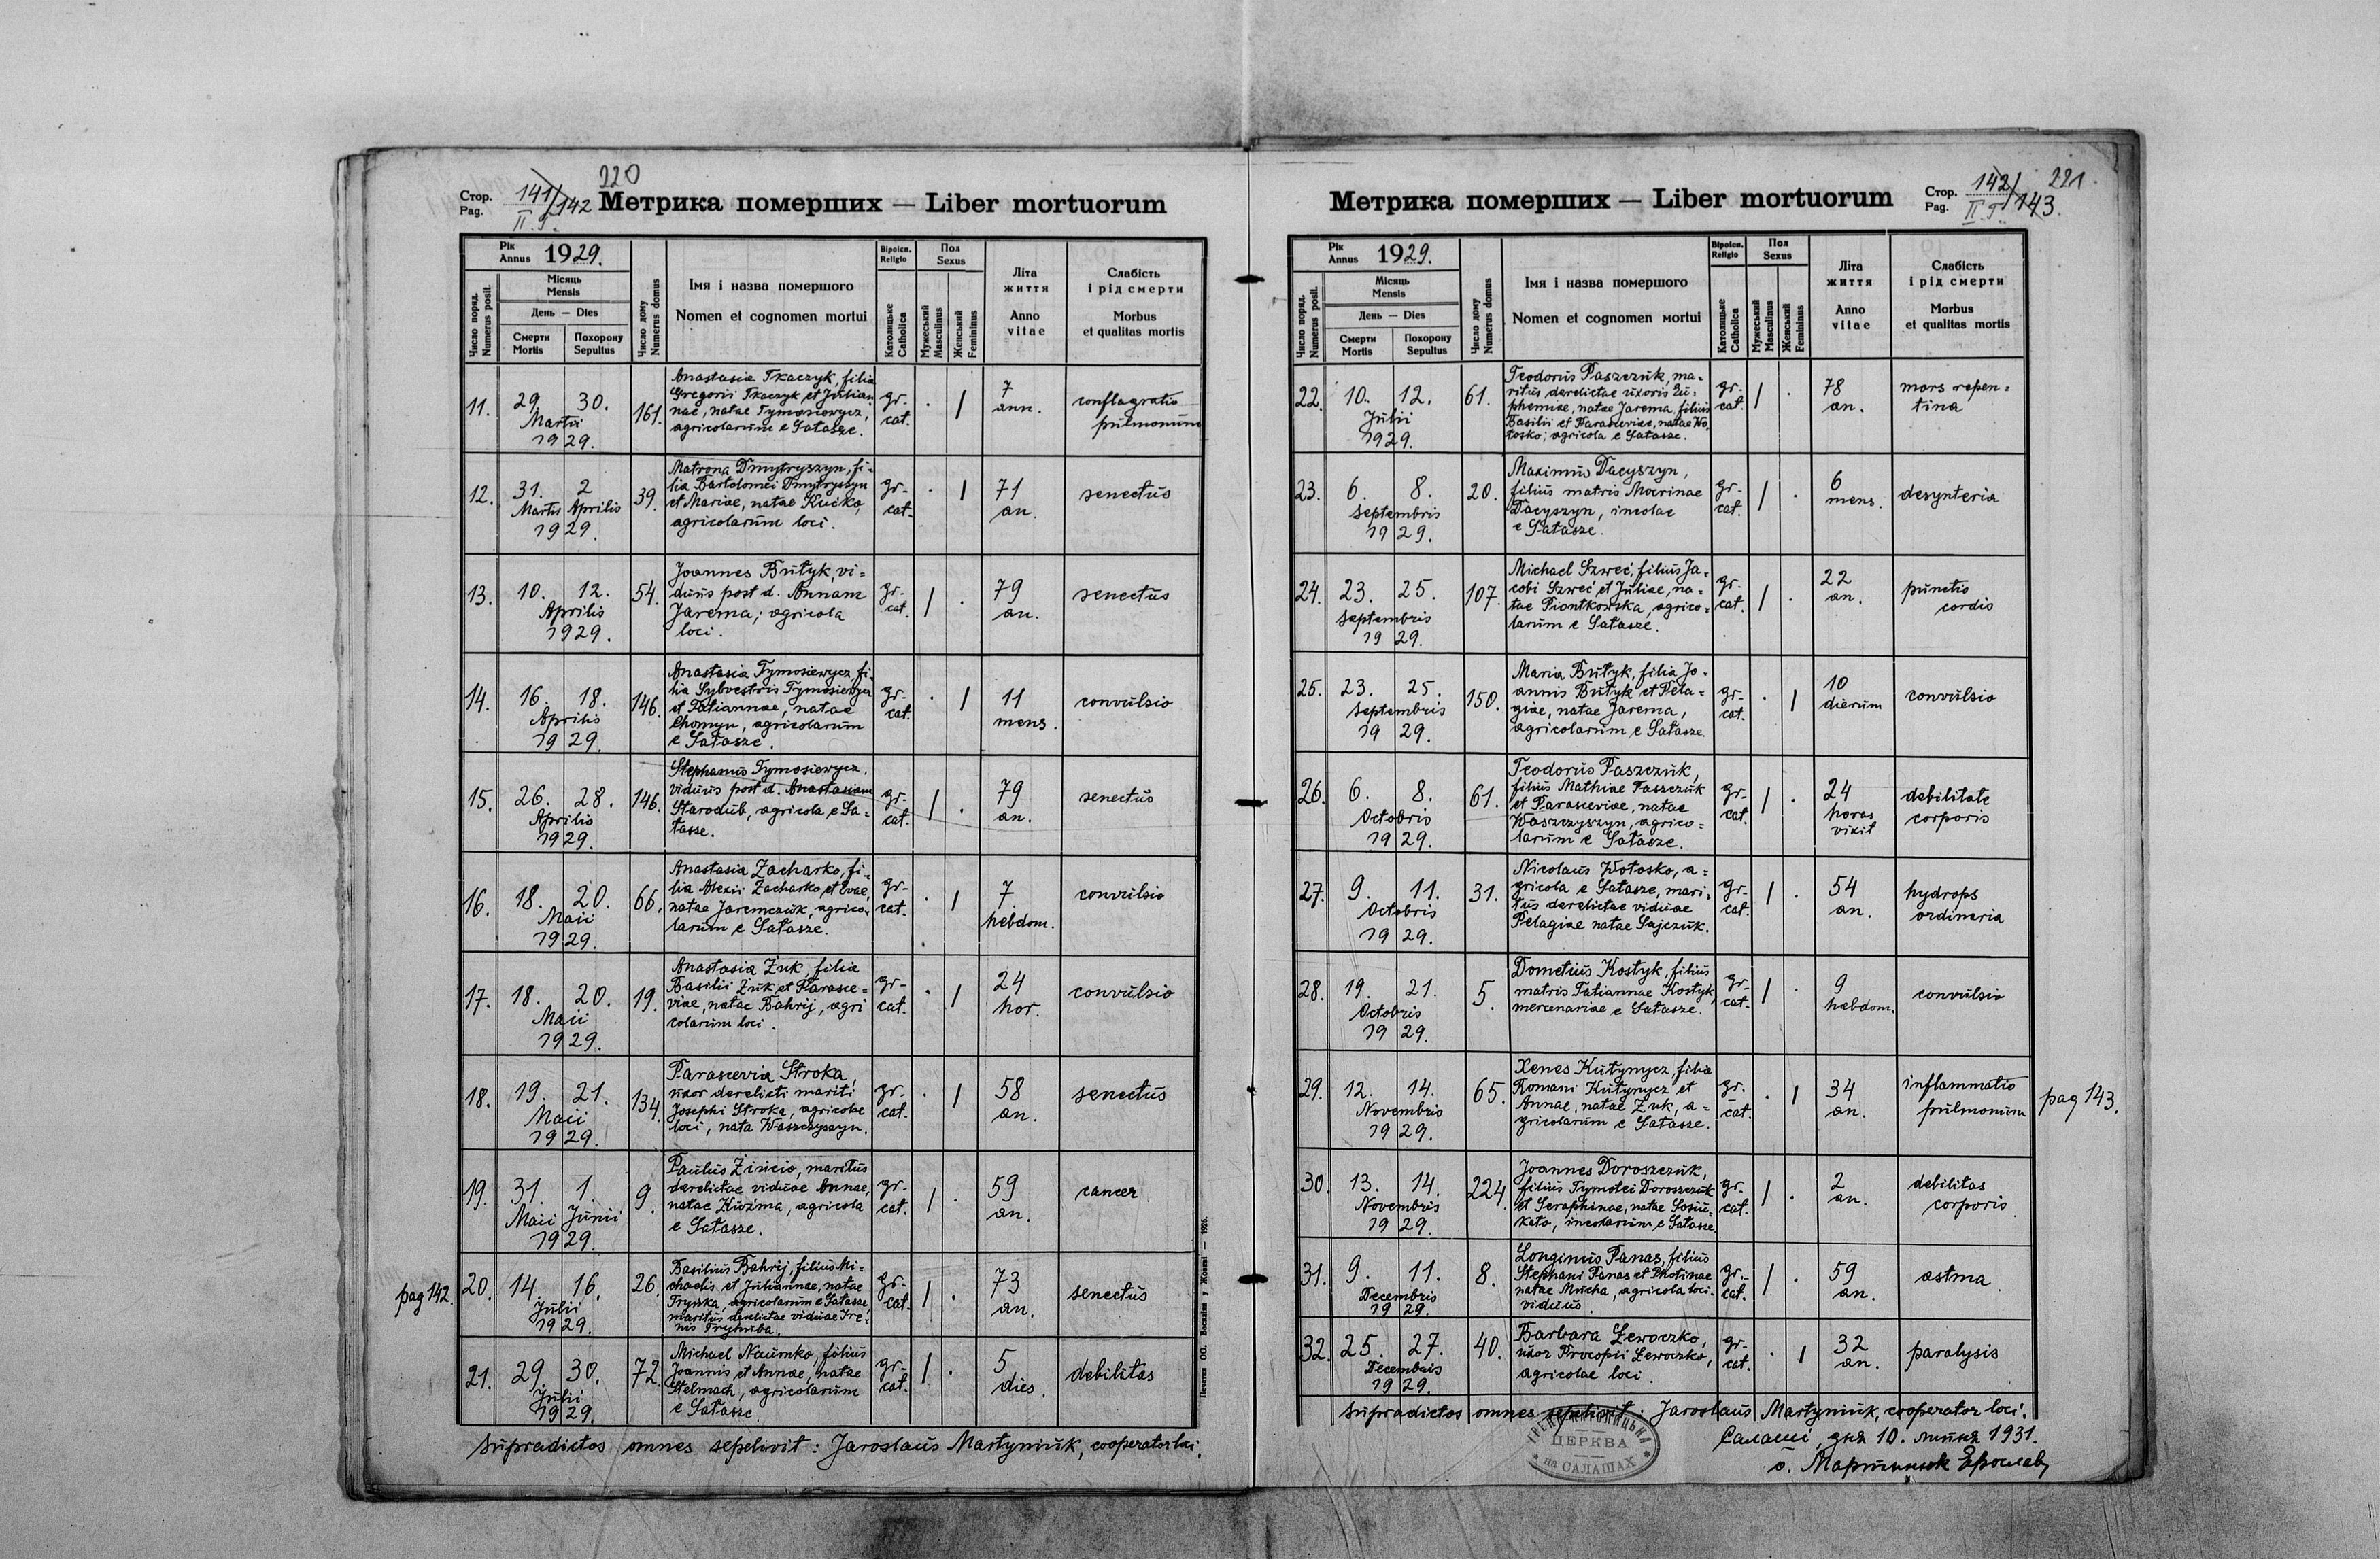 220
Стор.
Pag.
141/142
II. T.
Метрика померших — Liber mortuorum
Рік
Annus 1929.
Число поряд.
Numerus posit.
Місяць
Mensis
День — Dies
Смерти
Mortis
Похорону
Sepultus
Число дому
Numerus domus
Імя і назва помершого
Nomen et cognomen mortui
Віроісп.
Religio
Католицьке
Catholica
Пол
Sexus
Мужеський
Masculinus
Женський
Femininus
Літа
життя
Anno
vitae
Слабість
і рід смерти
Morbus
et qualitas mortis
11. 29. 30. Martii 1929. 161.
Anastasia Tkaczyk, filia
Gregorii Tkaczyk et Julian-
nae, natae Tymosiewycz,
agricolarum e Sałasze.
gr-cat. . | 7 ann. conflagratio pulmonum
12. 31. 2 Martii Aprilis 1929. 39.
Matrona Dmytryszyn, fi-
lia Bartolomei Dmytryszyn
et Mariae, natae Kućko,
agricolarum loci.
gr-cat. . | 71 an. senectus
13. 10. 12. Aprilis 1929. 54.
Joannes Butyk, vi-
duus post d. Annam
Jarema; agricola
loci.
gr-cat. | . 79 an. senectus
14. 16. 18. Aprilis 1929. 146.
Anastasia Tymosiewycz, fi-
lia Sylvestris Tymosiewycz
et Tatiannae, natae
Chomyn, agricolarum
e Sałasze.
gr-cat. . | 11 mens. convulsio
15. 26. 28. Aprilis 1929. 146.
Stephanus Tymosiewycz,
viduus post d. Anastasiam
Starodub, agricola e Sa-
łasze.
gr-cat. | . 79 an. senectus
16. 18. 20. Maii 1929. 66.
Anastasia Zacharko, fi-
lia Alexii Zacharko, et Evae,
natae Jaremczuk, agrico-
larum e Sałasze.
gr-cat. . | 7. hebdom. convulsio
17. 18. 20. Maii 1929. 19.
Anastasia Żuk, filia
Basilii Żuk et Parasce-
viae, natae Bahrij, agri
colarum loci.
gr-cat. . | 24 hor. convulsio
18. 19. 21. Maii 1929. 134.
Parascevia Stroka,
uxor derelicti mariti
Josephi Stroka, agricolae
loci, nata Waszczyszyn.
gr-cat. . | 58 an. senectus
19. 31. 1. Maii Junii 1929. 9.
Paulus maritus
derelictae viduae Annae,
natae Kuźma, agricola
e Sałasze.
gr-cat. | . 59 an. cancer
pag 142.
20. 14. 16. Julii 1929. 26.
Basilius Bahrij, filius Mi-
chaelis et Juliannae, natae
agricolarum e Sałasze,
maritus derelictae viduae Ire-
nis
gr-cat. | . 73 an. senectus
21. 29. 30. Julii 1929. 72.
Michael Naumko, filius
Joannis et Annae, natae
Stelmach, agricolarum
e Sałasze.
gr-cat. | . 5 dies. debilitas
Supradictos omnes sepelivit: Jaroslaus Martyniuk, cooperator loci.
Печатня ОО. Василіян у Жовкві — 1926.
Метрика померших — Liber mortuorum
Стор.
Pag.
142/143.
II. T.
221.
Рік
Annus 1929.
Число поряд.
Numerus posit.
Місяць
Mensis
День — Dies
Смерти
Mortis
Похорону
Sepultus
Число дому
Numerus domus
Імя і назва помершого
Nomen et cognomen mortui
Віроісп.
Religio
Католицьке
Catholica
Пол
Sexus
Мужеський
Masculinus
Женський
Femininus
Літа
життя
Anno
vitae
Слабість
і рід смерти
Morbus
et qualitas mortis
22. 10. 12. Julii 1929. 61.
Teodorus Paszczuk, ma-
ritus derelictae uxoris Eu-
phemiae, natae Jarema, filius
Basilii et Parasceviae, natae Wo-
łosko; agricola e Sałasze.
gr-cat. | . 78 an. mors repen-tina
23. 6. 8. Septembris 1929. 20.
Maximus Dacyszyn,
filius matris Marinae
Dacyszyn, incolae
e Sałasze.
gr-cat. | . 6 mens. desynteria
24. 23. 25. Septembris 1929. 107.
Michael Szweć, filius Ja-
cobi Szweć et Juliae, na-
tae Piontkowska, agrico-
larum e Sałasze.
gr-cat. | . 22 an. punctio cordis
25. 23. 25. Septembris 1929. 150.
Maria Butyk, filia Jo-
annis Butyk et Pela-
giae, natae Jarema,
agricolarum e Sałasze.
gr-cat. . | 10 dierum convulsio
26. 6. 8. Octobris 1929. 61.
Teodorus Paszczuk,
filius Mathiae Paszczuk
et Parasceviae, natae
Waszczyszyn, agrico-
larum e Sałasze.
gr-cat. | . 24 horas vixit debilitate corporis
27. 9. 11. Octobris 1929. 31.
Nicolaus Wołosko, a-
gricola e Sałasze, mari-
tus derelictae viduae
Pelagiae natae Sajczuk.
gr-cat. | . 54 an. hydrops ordinaria
28. 19. 21. Octobris 1929. 5.
Dometius Kostyk, filius
matris Tatiannae Kostyk,
mercenariae e Sałasze.
gr-cat. | . 9 hebdom. convulsio
29. 12. 14. Novembris 1929. 65.
Xenes Kutynycz, filia
Romani Kutynycz et
Annae, natae Żuk, a-
gricolarum e Sałasze.
gr-cat. . | 34 an. inflammatio pulmonum
pag 143.
30. 13. 14. Novembris 1929. 224.
Joannes Doroszczuk,
filius Tymotei Doroszczuk
et Seraphinae, natae
incolarum e Sałasze.
gr-cat. | . 2 an. debilitas corporis
31. 9. 11. Decembris 1929. 8.
Longinus Panas, filius
Stephani Panas et Photinae
natae Mucha, agricola loci.
viduus.
gr-cat. | . 59 an. astma
32. 25. 27. Decembris 1929. 40.
Barbara Lewoczko,
uxor Procopii Lewoczko,
agricolae loci.
gr-cat. . | 32 an. paralysis
Supradictos omnes sepelivit: Jaroslaus Martyniuk, cooperator loci.
Салаші, дня 10. липня 1931.
о. Мартинюк Ярослав
ГРЕКО КАТОЛИЦЬКА
ЦЕРКВА
на САЛАШАХ